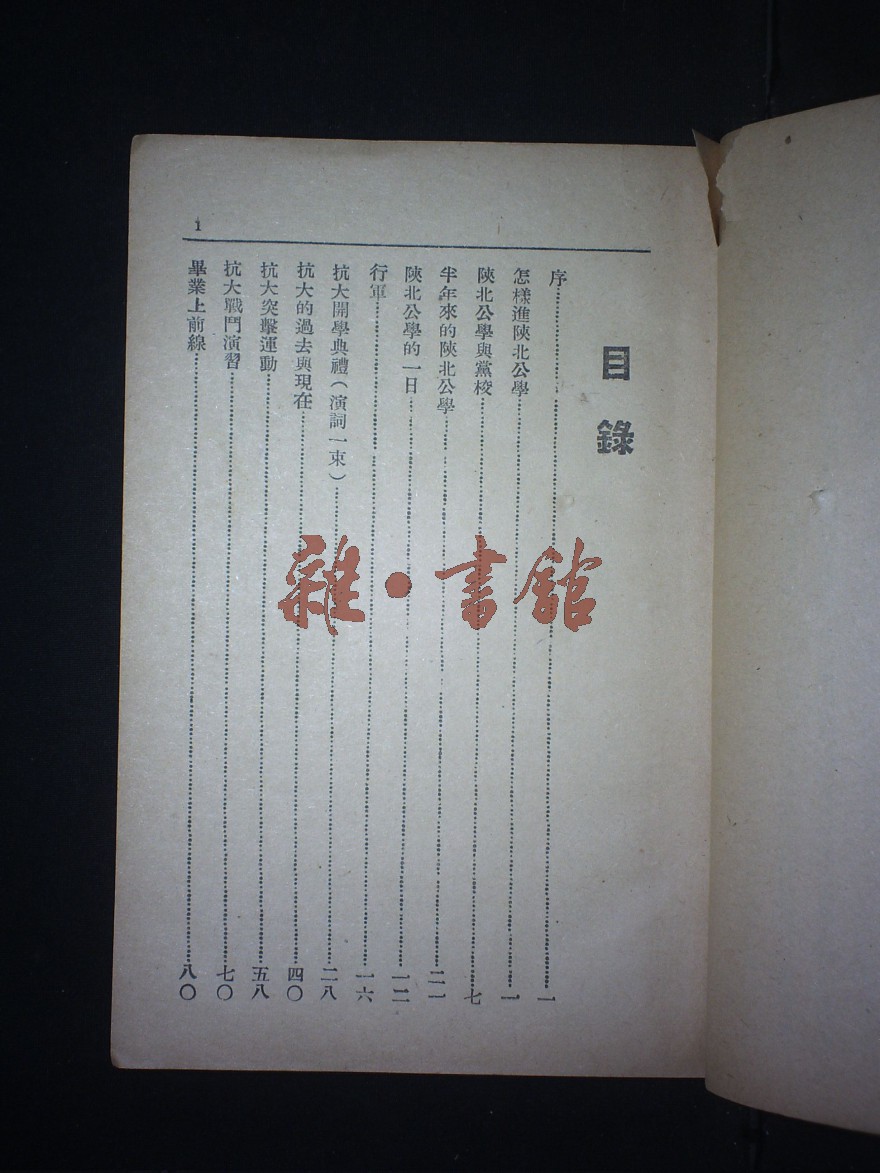 目錄
序……一
怎樣進陝北公學……一
陝北公學與黨校……七
半年來的陝北公學……二一
陝北公學的一日……一二
行軍……一六
抗大開學典禮（演詞一束）……二八
抗大的過去與現在……四〇
抗大突擊運動……五八
抗大戰鬥演習……七〇
畢業上前線……八〇
1
雜·書館